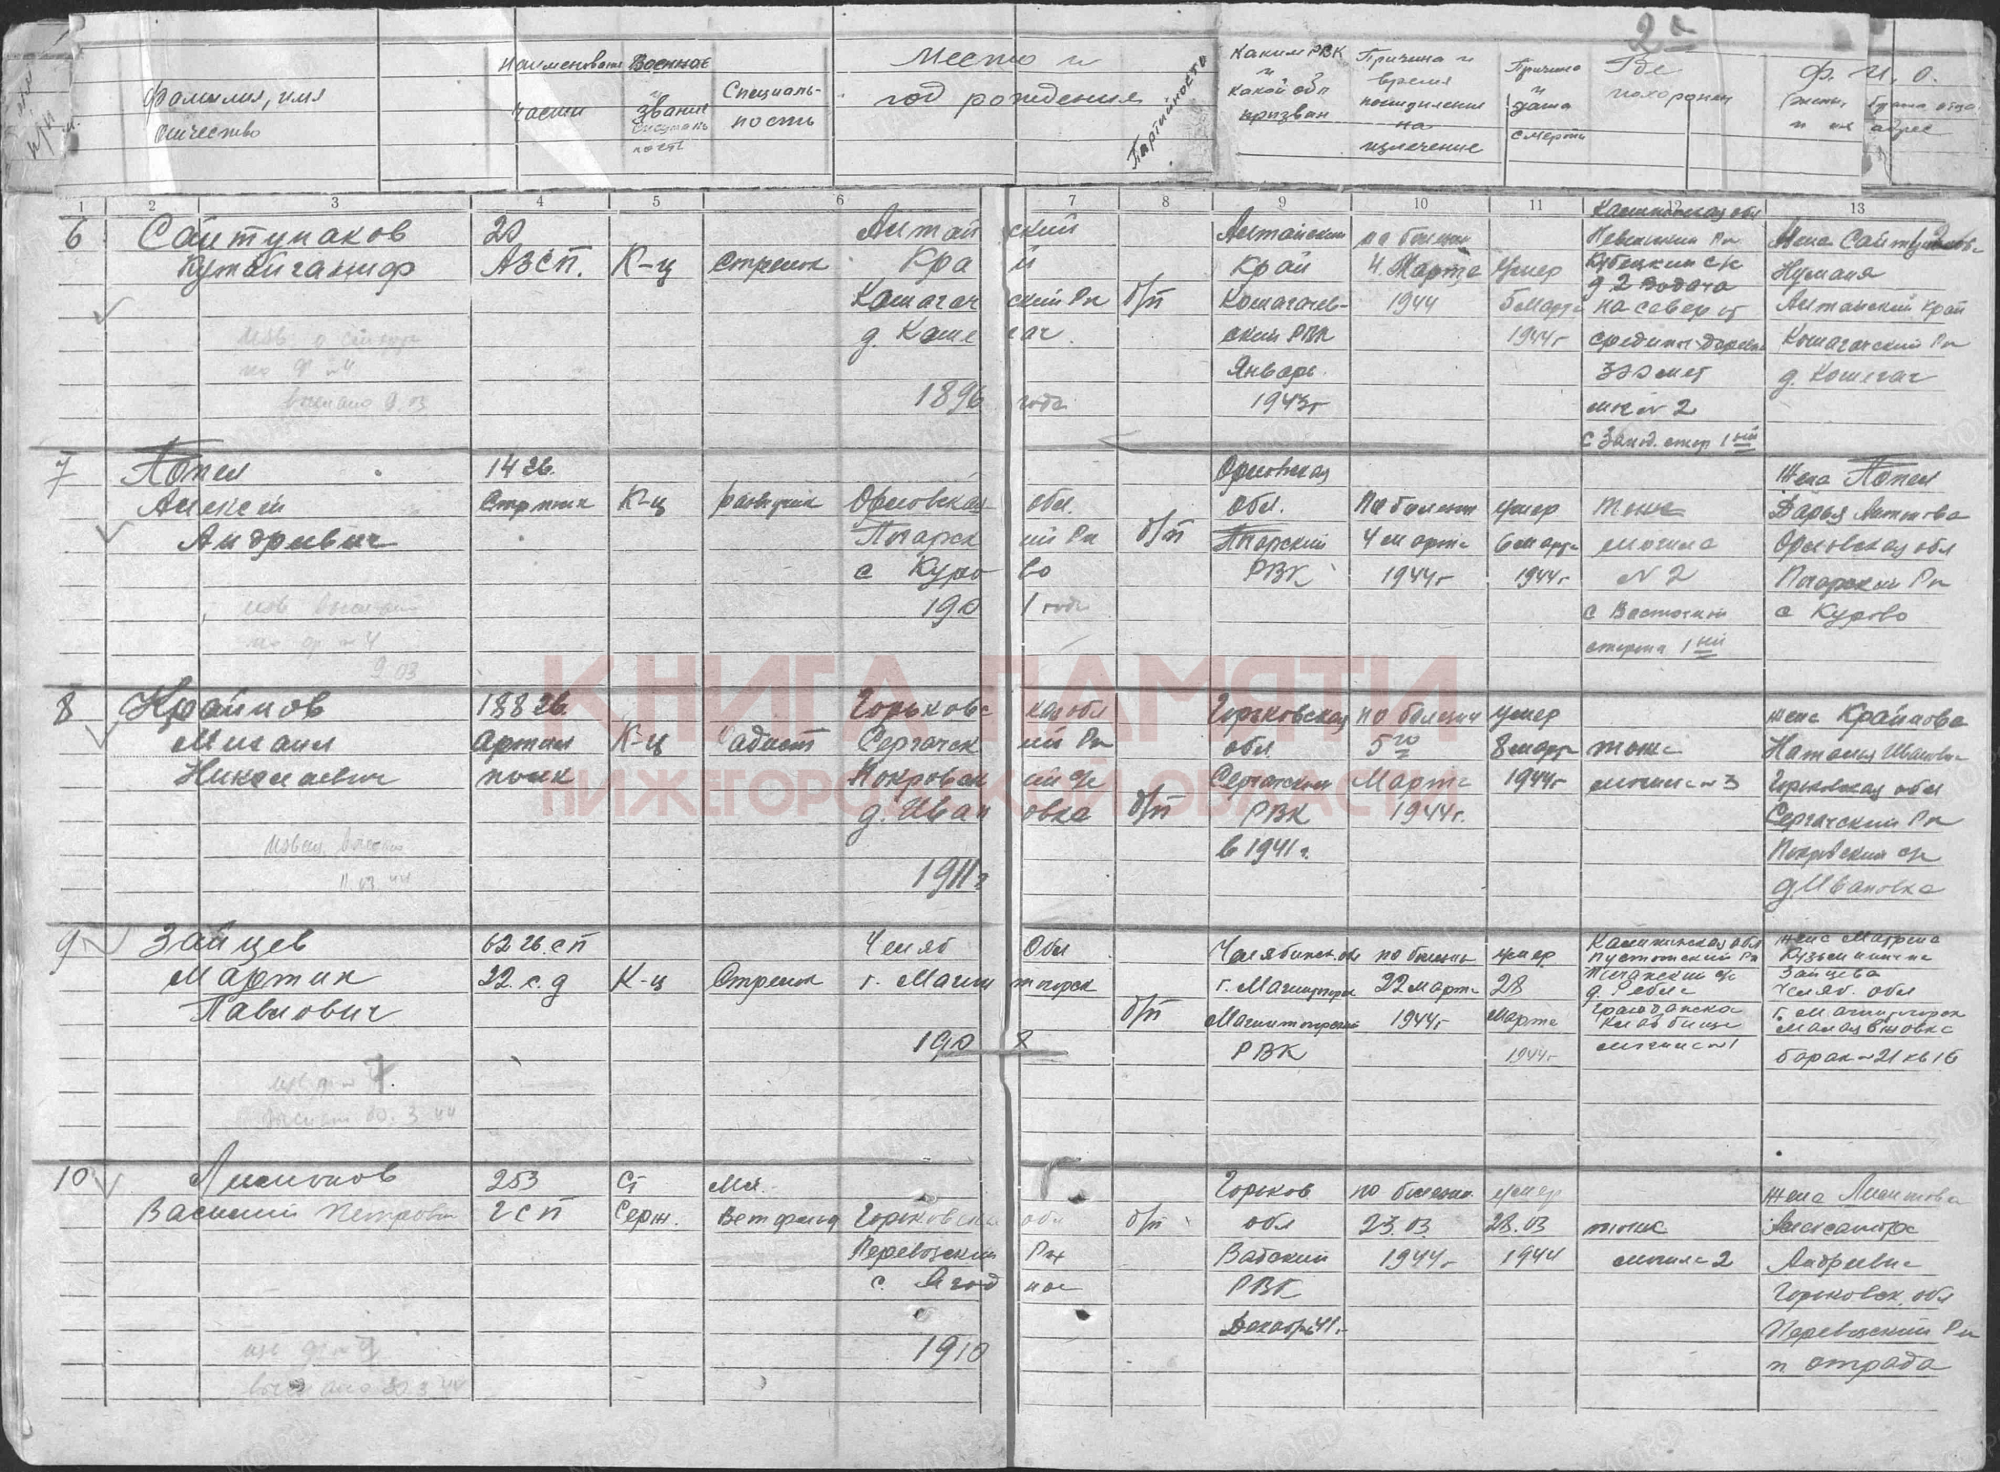 2а
Фамилия, имя
отчество
Наименование
части
Военное
звание
Специаль-
ность
Место и
год рождения
Партийность
Каким РВК
и
какой обл
призван
Причина и
время
поступления
на
излечение
Причина
и
дата
смерти
Где
похоронен
Ф. И. О.
и их адрес
1 2 3 4 5 6 7 8 9 10 11 12 13
6
Сайтунаков
20
АЗСП.
К-ц
Стрелок
Алтайский
Край
Кошагачский Рн
д. Кошегач.
1896 года
б/п
Алтайский
Край
Кошагачев-
ский РВК
Январь
1943г
по болезни
4. Марта
1944
умер
5 марта
1944г
Калининская обл
Невельский Рн
д. 2
на север от
средины деревни
330 мет
мог N 2
с Запод. стор 1ый
Жена
Алтайский Край
Кошагачский Рн
д. Кошегач
7
Попел
Алексей
Андреевич
14 гв.
К-ц
Орловская обл.
Погарский Рн
с Курово
1901 года
б/п
Орловская
Обл.
Погарский
РВК
По болезни
4 марта
1944г
умер
6 марта
1944г
Тоже
могила
N 2
с Восточной
сторона 1ый
Жена Попел
Дарья
Орловская обл
Погарский Рн
с Курово
8
Крайнов
Михаил
Николаевич
188 гв.
Артил
полк
К-ц
Радист
Горьковская обл
Сергачский Рн
Покровский с/с
д. Ивановка
1911г
б/п
Горьковская
обл.
Сергачский
РВК
в 1941г.
по болезни
5го
Марта
1944г.
умер
8 марта
1944г
тоже
могила N 3
жена Крайнова
Наталья Ивановна
Горьковская обл
Сергачский Рн
Покровский с/с
д. Ивановка
9
Зайцев
Мартин
Павлович
62 гв. сп
22. с. д
К-ц
Стрелок
Челяб Обл
г. Магнитогорск
1908
б/п
Челябинск. обл
г. Магнитогорск
Магнитогорский
РВК
по болезни
22 марта
1944г
умер
28
Марта
1944г
Калининская обл
Пустошский Рн
д.
Гражданска
Кладбище
могила N 1
жена Матрена
Кузьминична
Зайцева
Челяб. обл
г. Магнитогорск
барак N 21 кв 16
10
Василий Петрович
253
2 СП
Ст
Серж.
Мл.
Ветфельд
Горьковская обл
Перевозский Рн
с. Ягодное
1910
б/п
Горьков
обл
Вадский
РВК
Декабрь 41г.
по болезни
23.03
1944г
умер
28.03
1944
тоже
могила 2
жена
Александра
Андреевна
Горьковск. обл
Перевозский Рн
п. отрада
КНИГА ПАМЯТИ
НИЖЕГОРОДСКОЙ ОБЛАСТИ